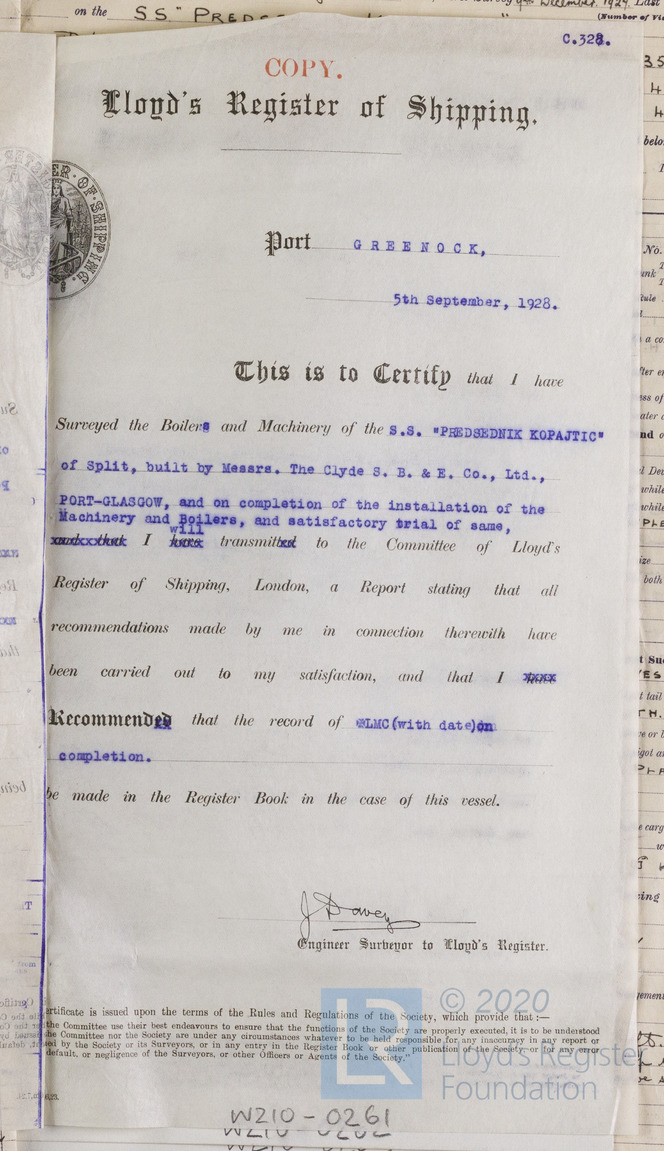 on the S.S. "PREDS
December. 1929. Last
(Number of Vi
C.328.
COPY.
Lloyd's Register of Shipping.
ER·OF·SHIPPING.
Port GREENOCK,
5th September, 1928.
This is to Certify that I have
Surveyed the Boilers and Machinery of the S.S. "PREDSEDNIK KOPAJTIC"
of Split, built by Messrs. The Clyde S. B. & E. Co., Ltd.,
PORT-GLASGOW, and on completion of the installation of the
Machinery and Boilers, and satisfactory trial of same,
will
I transmit to the Committee of Lloyd's
Register of Shipping, London, a Report stating that all
recommendations made by me in connection therewith have
been carried out to my satisfaction, and that I
Recommend that the record of LMC(with date)on
completion.
be made in the Register Book in the case of this vessel.
J Davey
Engineer Surveyor to Lloyd's Register.
ertificate is issued upon the terms of the Rules and Regulations of the Society, which provide that :—
the Committee use their best endeavours to ensure that the functions of the Society are properly executed, it is to be understood
he Committee nor the Society are under any circumstances whatever to be held responsible for any inaccuracy in any report or
ed by the Society or its Surveyors, or in any entry in the Register Book or other publication of the Society, or for any error
default, or negligence of the Surveyors, or other Officers or Agents of the Society."
LR
© 2020
Lloyd's Register
Foundation
W210-0261